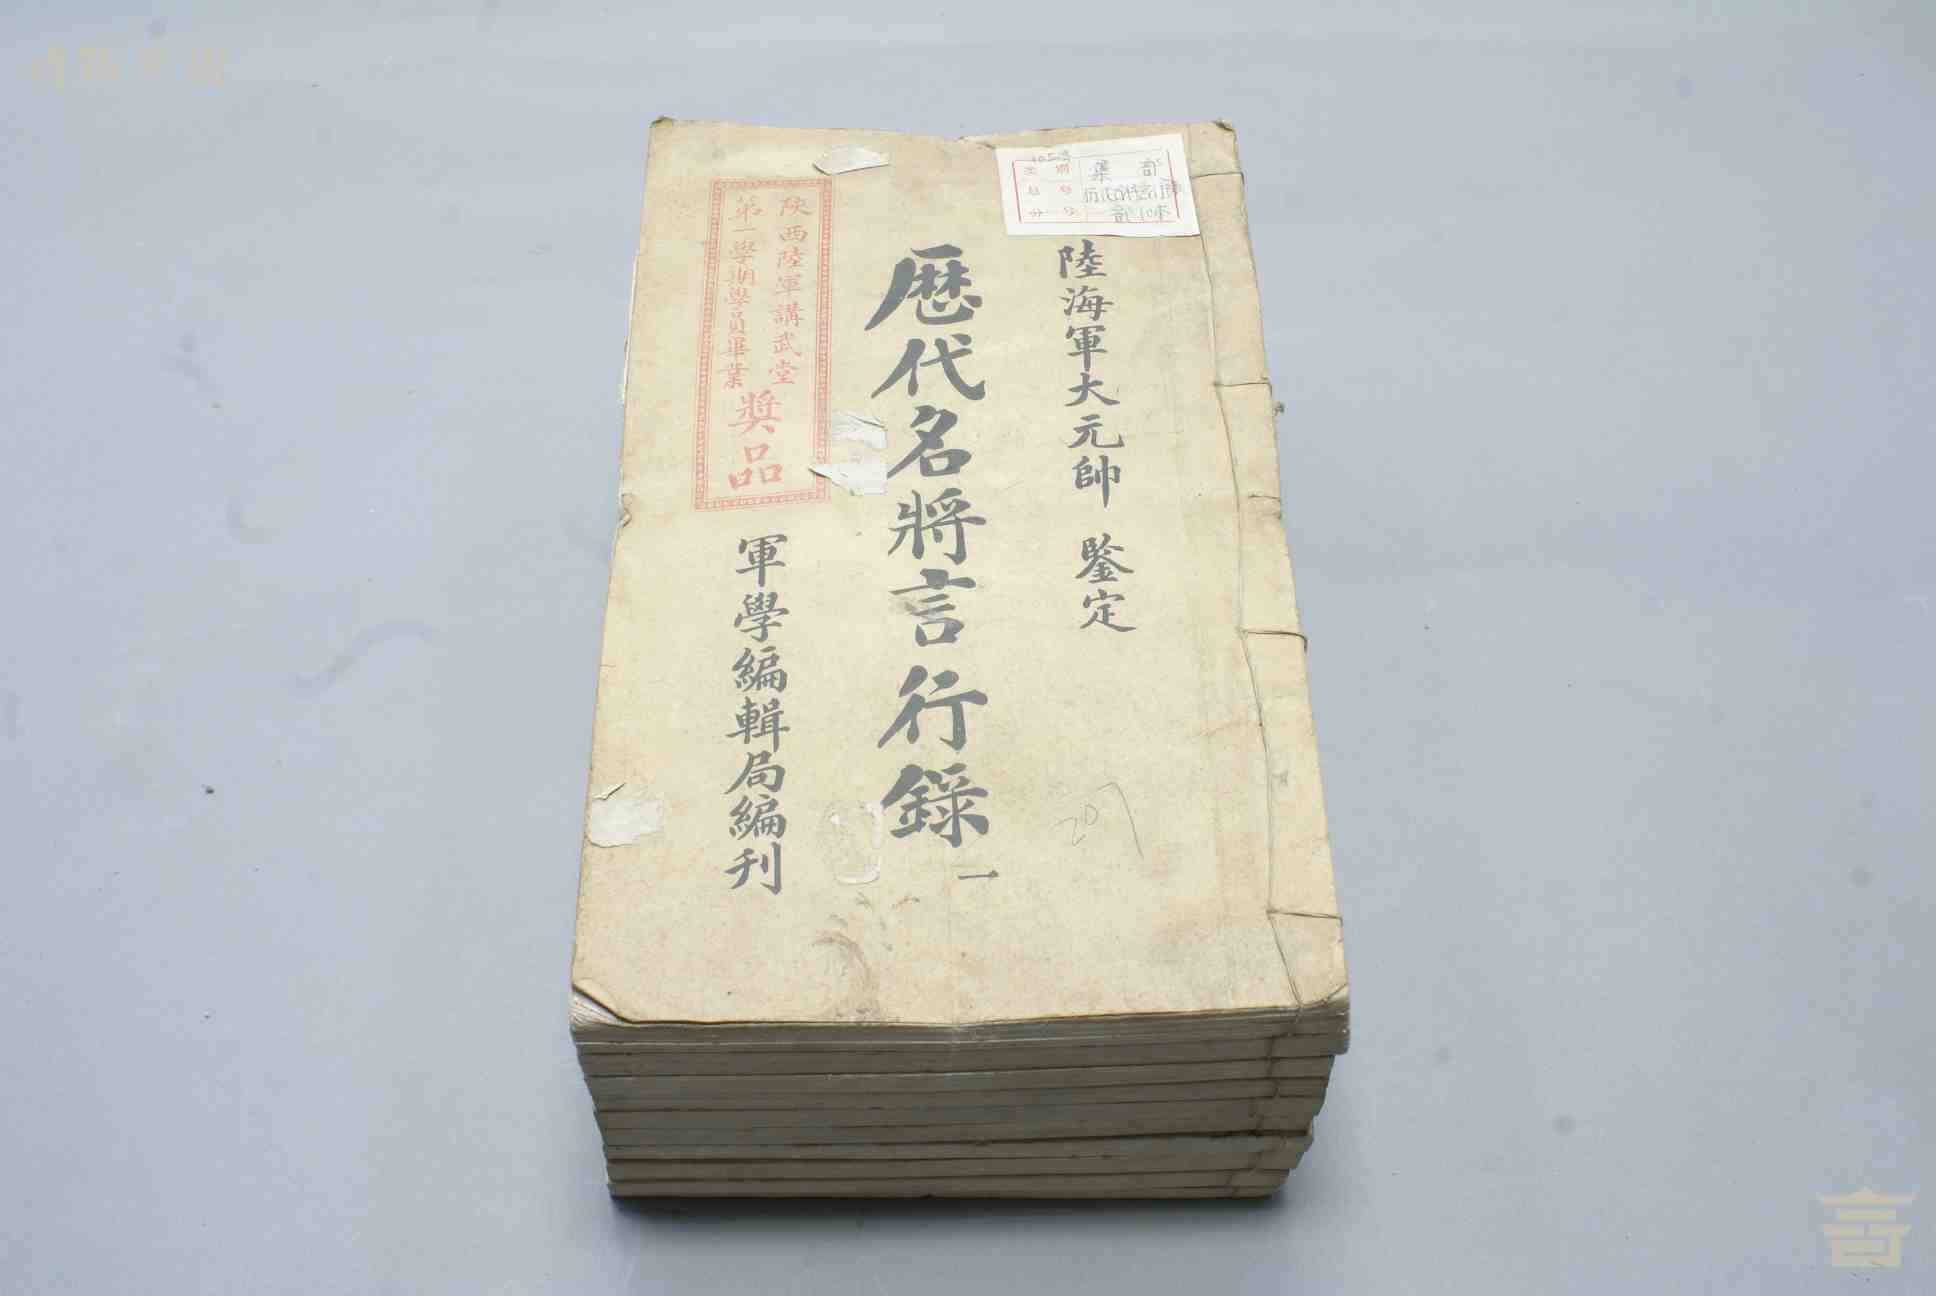 陸海軍大元帥 鑒定
歷代名將言行錄 一
陝西陸軍講武堂
第一學期學員畢業
獎品
軍學編輯局編刊
集部
207